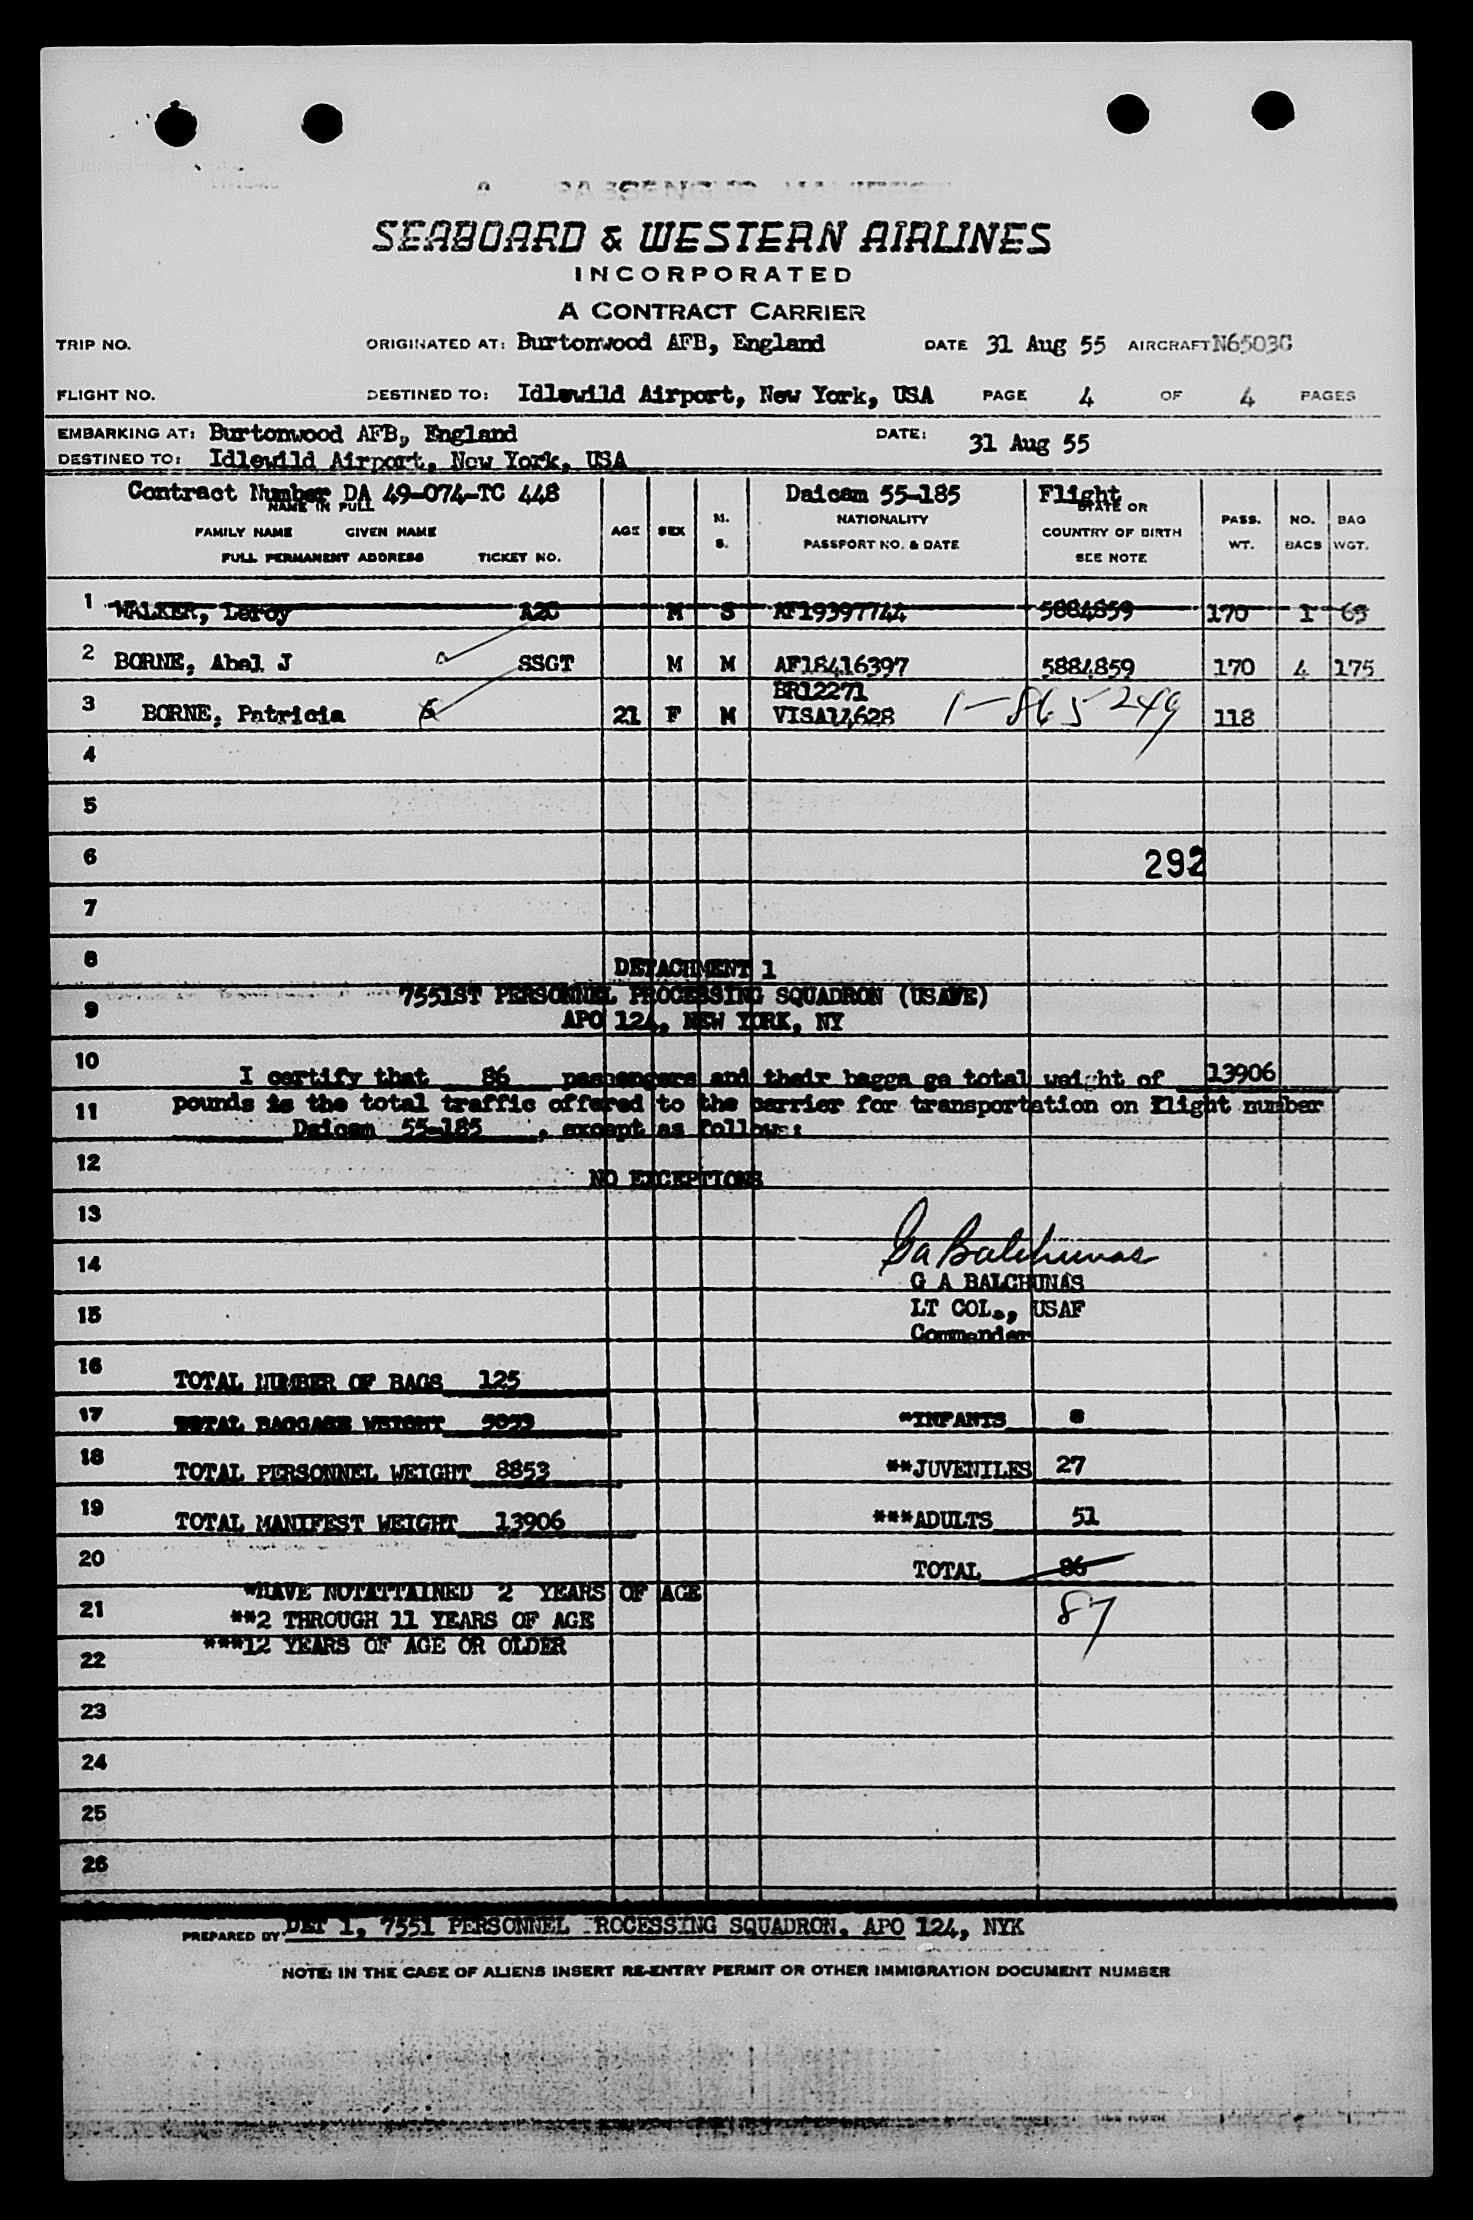 PASSENGER MANIFEST
SEABOARD & WESTERN AIRLINES
INCORPORATED
A CONTRACT CARRIER
TRIP NO. ORIGINATED AT: Burtonwood AFB, England DATE 31 Aug 55 AIRCRAFT N6503C
FLIGHT NO. DESTINED TO: Idlewild Airport, New York, USA PAGE 4 OF 4 PAGES
EMBARKING AT: Burtonwood AFB, England DATE: 31 Aug 55
DESTINED TO: Idlewild Airport, New York, USA
Contract Number DA 49-074-TC 448 Daicam 55-185 Flight
NAME IN FULL STATE OR
FAMILY NAME GIVEN NAME AGE SEX M. S. NATIONALITY COUNTRY OF BIRTH PASS. WT. NO. BAGS BAG WGT.
FULL PERMANENT ADDRESS TICKET NO. PASSPORT NO. & DATE SEE NOTE
1 WALKER, Leroy A2C M S AF19397744 5884859 170 1 65
2 BORNE, Abel J SSGT M M AF18416397 5884859 170 4 175
BR12271
3 BORNE, Patricia 21 F M VISA14628 1-865249 118
4
5
6 292
7
8 DETACHMENT 1
9 7551ST PERSONNEL PROCESSING SQUADRON (USAFE)
APO 124, NEW YORK, NY
10 I certify that 86 passengers and their bagga ge total weight of 13906
11 pounds is the total traffic offered to the carrier for transportation on flight number
Daicam 55-185, except as follows:
12 NO EXCEPTIONS
13
14 Ga Balchunas
G A BALCHUNAS
15 LT COL., USAF
Commander
16 TOTAL NUMBER OF BAGS 125
17 TOTAL BAGGAGE WEIGHT 5053 *INFANTS 8
18 TOTAL PERSONNEL WEIGHT 8853 **JUVENILES 27
19 TOTAL MANIFEST WEIGHT 13906 ***ADULTS 51
20 TOTAL 86
*HAVE NOT ATTAINED 2 YEARS OF AGE
21 **2 THROUGH 11 YEARS OF AGE 87
22 ***12 YEARS OF AGE OR OLDER
23
24
25
26
PREPARED BY DET 1, 7551 PERSONNEL PROCESSING SQUADRON, APO 124, NYK
NOTE: IN THE CASE OF ALIENS INSERT RE-ENTRY PERMIT OR OTHER IMMIGRATION DOCUMENT NUMBER